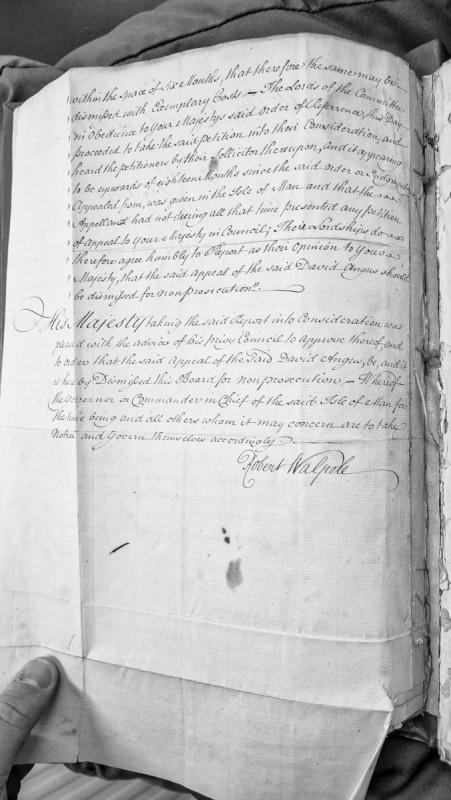 within the space of Six Months, that therefore the same may be
dismissed with Exemplary Costs — The Lords of the Committee
in Obedience to Your Majestys said Order of Reference, this Day
proceeded to take the said petition into their Consideration, and
heard the petitioners by their Sollicitor thereupon, and it appearing
to be upwards of eighteen Months since the said order or Judgment
Appealed from, was given in the Isle of Man and that the
Appellant had not during all that time presented any petition
of appeal to Your Majesty in Council; Their Lordships do
therefore agree humbly to Report as their Opinion to Your
Majesty, that the said Appeal of the said David Angus should
be dismissed for nonprosecution".
His Majesty taking the said Report into Consideration was
pleased with the advice of his privy Council to Approve thereof and
to order that the said Appeal of the Said David Angus, be, and it
is hereby Dismissed this Board for nonprosecution — Whereof
the Governor or Commander in Chief of the said Isle of Man for
the time being and all others whom it may concern are to take
Notice and Govern themselves accordingly
Robert Walpole